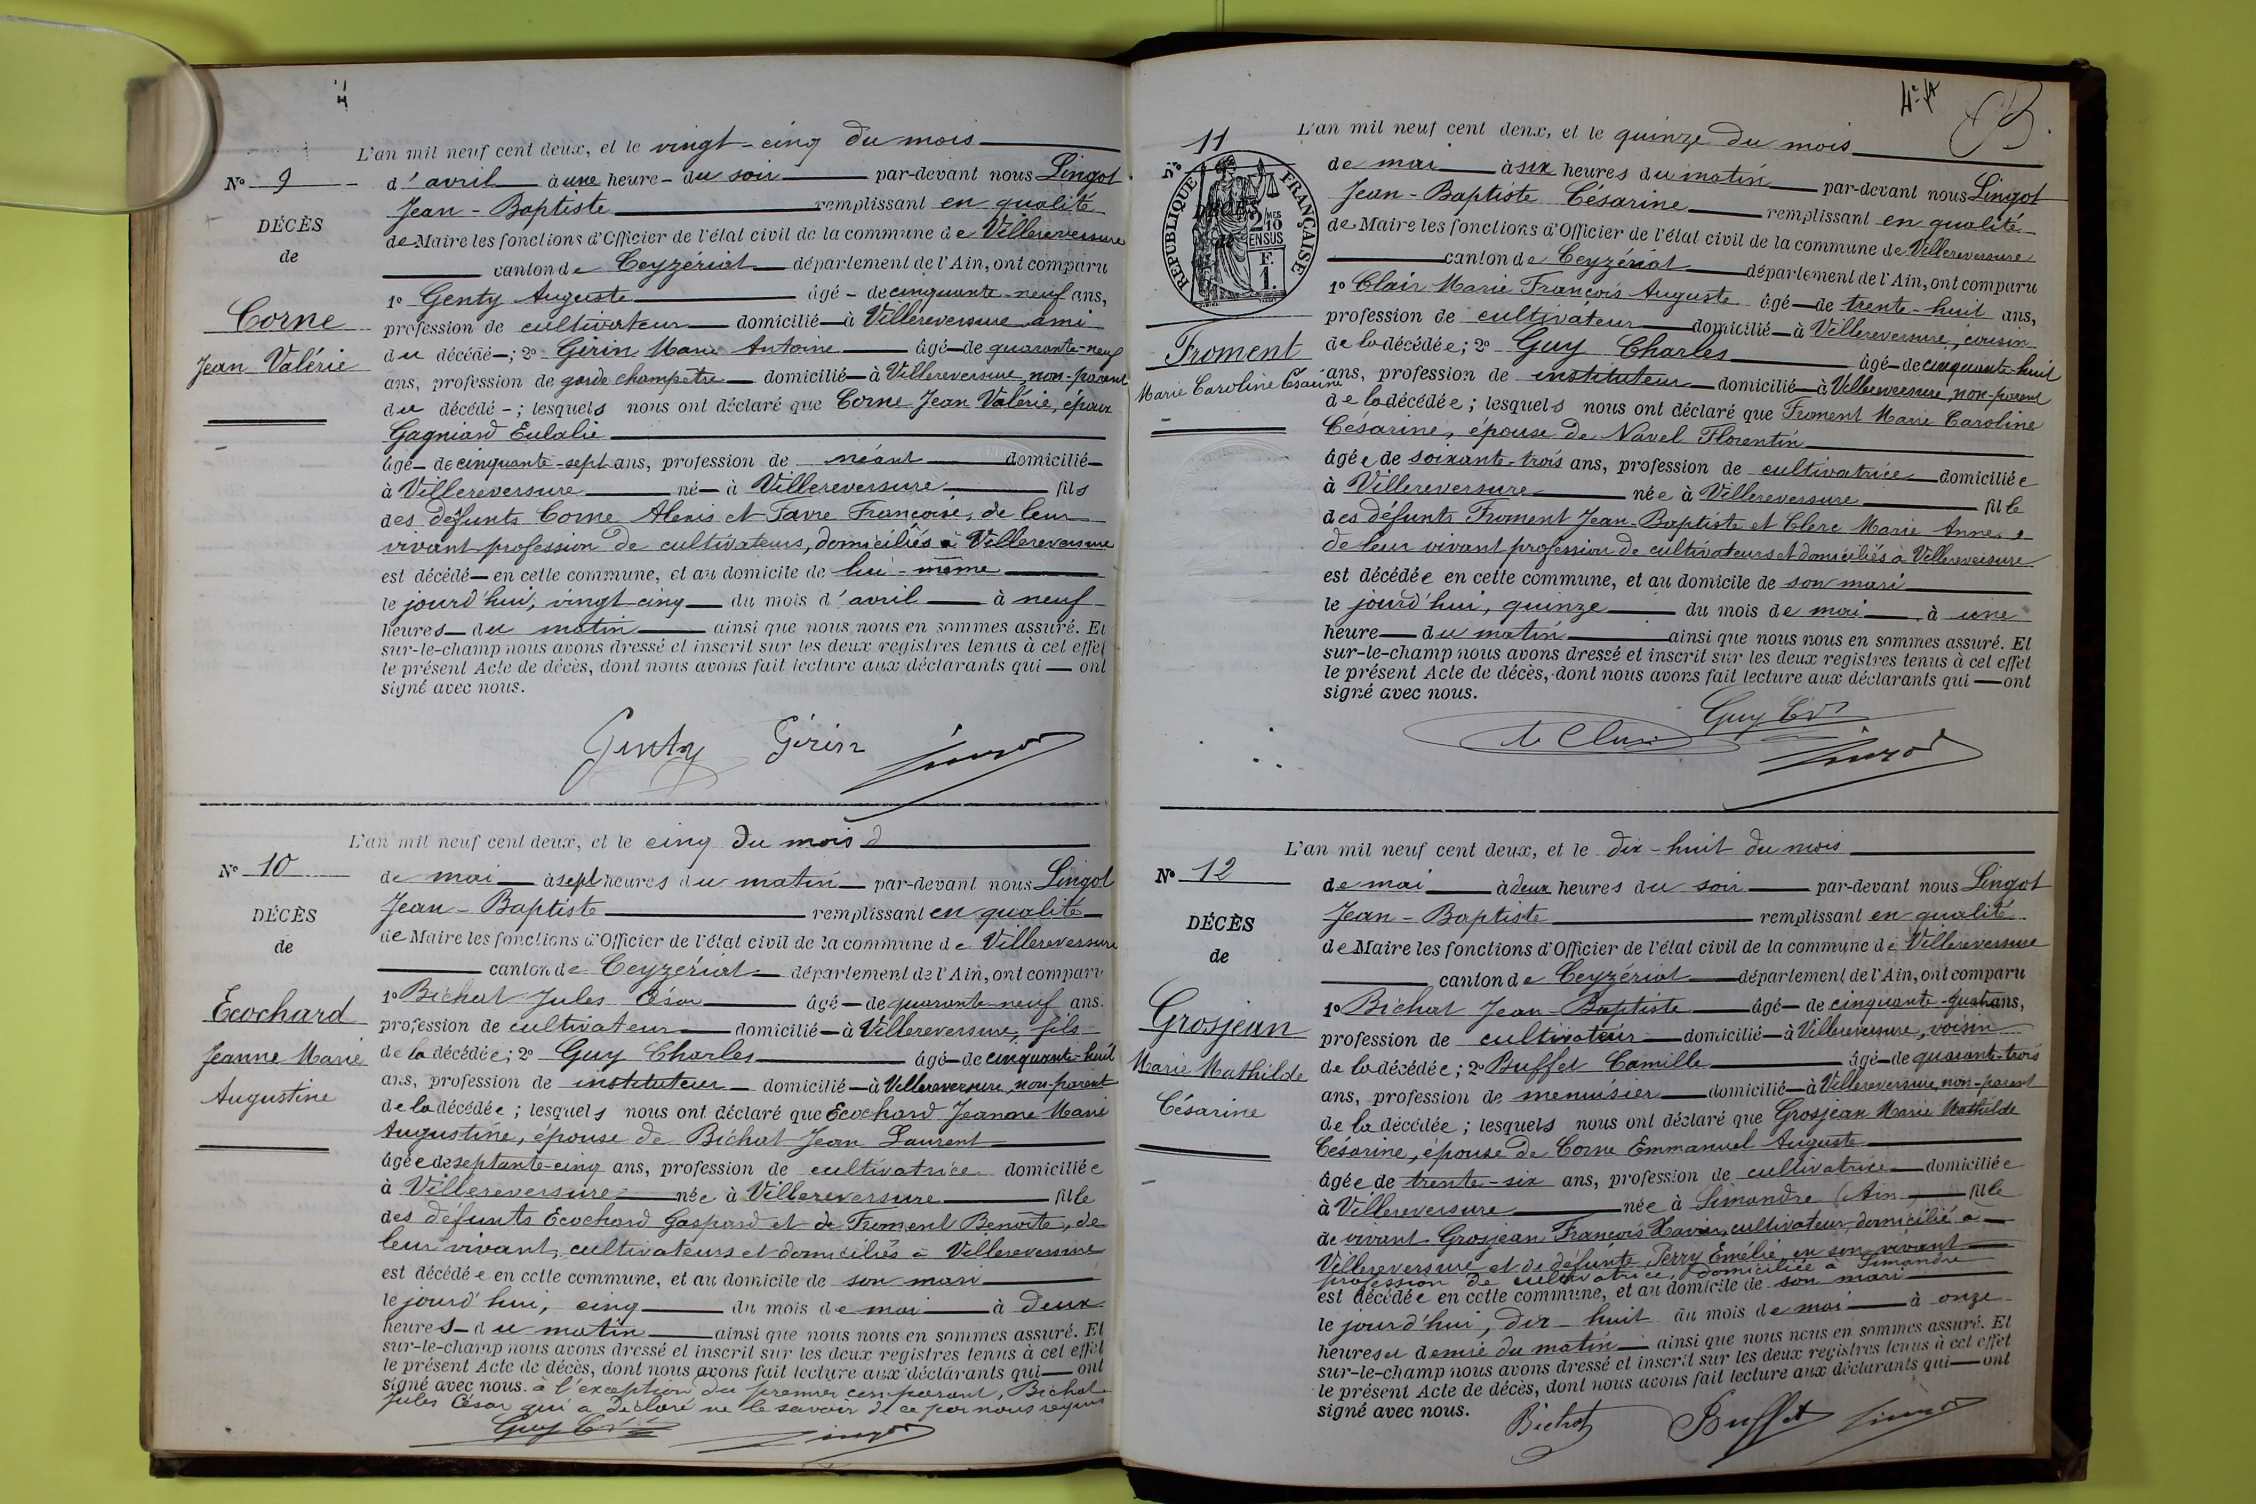 L'an mil neuf cent deux, et le vingt-cinq du mois
N° 9
d'avril à une heure du soir par-devant nous Lingot
Jean-Baptiste remplissant en qualité
de Maire les fonctions d'Officier de l'état civil de la commune de Villereversure
canton de Ceyzériat département de l'Ain, ont comparu
DÉCÈS
de
Corne
Jean Valérie
1° Genty Auguste âgé de cinquante-neuf ans,
profession de cultivateur domicilié à Villereversure ami
du décédé; 2° Gérin Marie Antoine âgé de quarante-neuf
ans, profession de garde champêtre domicilié à Villereversure, non-parent
du décédé; lesquels nous ont déclaré que Corne Jean Valérie, époux
Gagniard Eulalie
âgé de cinquante-sept ans, profession de néant domicilié
à Villereversure né à Villereversure fils
des défunts Corne Alexis et Favre Françoise, de leur
vivant profession de cultivateurs, domiciliés à Villereversure
est décédé en cette commune, et au domicile de lui-même
le jourd'hui, vingt-cinq du mois d'avril à neuf
heures du matin ainsi que nous nous en sommes assuré. Et
sur-le-champ nous avons dressé et inscrit sur les deux registres tenus à cet effet
le présent Acte de décès, dont nous avons fait lecture aux déclarants qui ont
signé avec nous.
Genty Gérin Lingot
L'an mil neuf cent deux, et le cinq du mois d
N° 10
DÉCÈS
de
Ecochard
Jeanne Marie
Augustine
de mai à sept heures du matin par-devant nous Lingot
Jean-Baptiste remplissant en qualité
de Maire les fonctions d'Officier de l'état civil de la commune de Villereversure
canton de Ceyzériat département de l'Ain, ont comparu
1° Bichat Jules César âgé de quarante-neuf ans.
profession de cultivateur domicilié à Villereversure, fils
de la décédée; 2° Guy Charles âgé de cinquante-huit
ans, profession de instituteur domicilié à Villereversure, non-parent
de la décédée; lesquels nous ont déclaré que Ecochard Jeanne Marie
Augustine, épouse de Bichat Jean Laurent
âgée de septante-cinq ans, profession de cultivatrice domiciliée
à Villereversure née à Villereversure fille
des défunts Ecochard Gaspard et de Froment Benoite, de
leur vivant, cultivateurs et domiciliés à Villereversure
est décédée en cette commune, et au domicile de son mari
le jourd'hui, cinq du mois de mai à deux
heures du matin ainsi que nous nous en sommes assuré. Et
sur-le-champ nous avons dressé et inscrit sur les deux registres tenus à cet effet
le présent Acte de décès, dont nous avons fait lecture aux déclarants qui ont
signé avec nous. à l'exception du premier comparant, Bichat
Jules César qui a déclaré ne le savoir de ce par nous requis
Guy Lingot
L'an mil neuf cent deux, et le quinze du mois
N° 11
RÉPUBLIQUE FRANÇAISE
2/10 EN SUS
F. 1.
DÉCÈS
Froment
Marie Caroline Césarine
de mai à six heures du matin par-devant nous Lingot
Jean-Baptiste Césarine remplissant en qualité
de Maire les fonctions d'Officier de l'état civil de la commune de Villereversure
canton de Ceyzériat département de l'Ain, ont comparu
1° Clair Marie François Auguste âgé de trente-huit ans,
profession de cultivateur domicilié à Villereversure, cousin
de la décédée; 2° Guy Charles âgé de cinquante-huit
ans, profession de instituteur domicilié à Villereversure, non-parent
de la décédée; lesquels nous ont déclaré que Froment Marie Caroline
Césarine, épouse de Navel Florentin
âgée de soixante-trois ans, profession de cultivatrice domiciliée
à Villereversure née à Villereversure fille
des défunts Froment Jean-Baptiste et Clerc Marie Anne,
de leur vivant profession de cultivateurs et domiciliés à Villereversure
est décédée en cette commune, et au domicile de son mari
le jourd'hui, quinze du mois de mai à une
heure du matin ainsi que nous nous en sommes assuré. Et
sur-le-champ nous avons dressé et inscrit sur les deux registres tenus à cet effet
le présent Acte de décès, dont nous avons fait lecture aux déclarants qui ont
signé avec nous.
Guy Lingot
L'an mil neuf cent deux, et le dix-huit du mois
N° 12
DÉCÈS
de
Grosjean
Marie Mathilde
Césarine
de mai à deux heures du soir par-devant nous Lingot
Jean-Baptiste remplissant en qualité
de Maire les fonctions d'Officier de l'état civil de la commune de Villereversure
canton de Ceyzériat département de l'Ain, ont comparu
1° Bichat Jean-Baptiste âgé de cinquante-quatre ans,
profession de cultivateur domicilié à Villereversure, voisin
de la décédée; 2° Buffet Camille âgé de quarante-trois
ans, profession de menuisier domicilié à Villereversure, non-parent
de la décédée; lesquels nous ont déclaré que Grosjean Marie Mathilde
Césarine, épouse de Corne Emmanuel Auguste
âgée de trente-six ans, profession de cultivatrice domiciliée
à Villereversure née à Simandre (Ain fille
de vivant Grosjean François Xavier, cultivateur, domicilié à
Villereversure et de défunte Perry Emélie, en son vivant
profession de cultivatrice, domiciliée à Simandre
est décédée en cette commune, et au domicile de son mari
le jourd'hui, dix-huit du mois de mai à onze
heures et demie du matin ainsi que nous nous en sommes assuré. Et
sur-le-champ nous avons dressé et inscrit sur les deux registres tenus à cet effet
le présent Acte de décès, dont nous avons fait lecture aux déclarants qui ont
signé avec nous.
Bichat Buffet Lingot